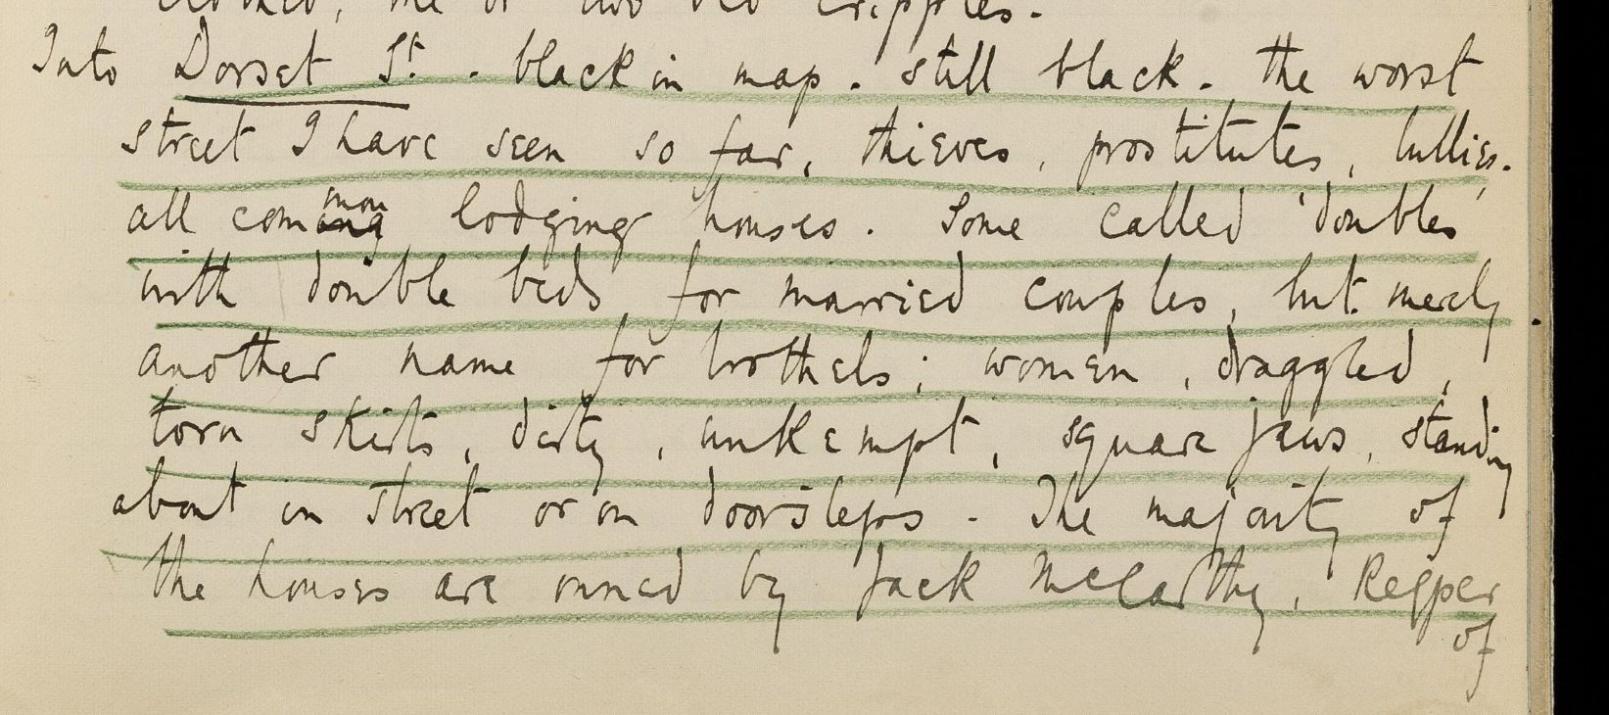 one or two old cripples.
Into Dorset St. . black in map . still black . the worst
street I have seen so far, thieves, prostitutes, bullies.
mon
all coming lodging houses . Some called 'doubles'
with double beds for married couples, but merely
another name for brothels ; women, draggled,
torn skirts, dirty, unkempt, square jaws, standing
about in street or on doorsteps . The majority of
the houses are owned by Jack McCarthy, Keeper
of